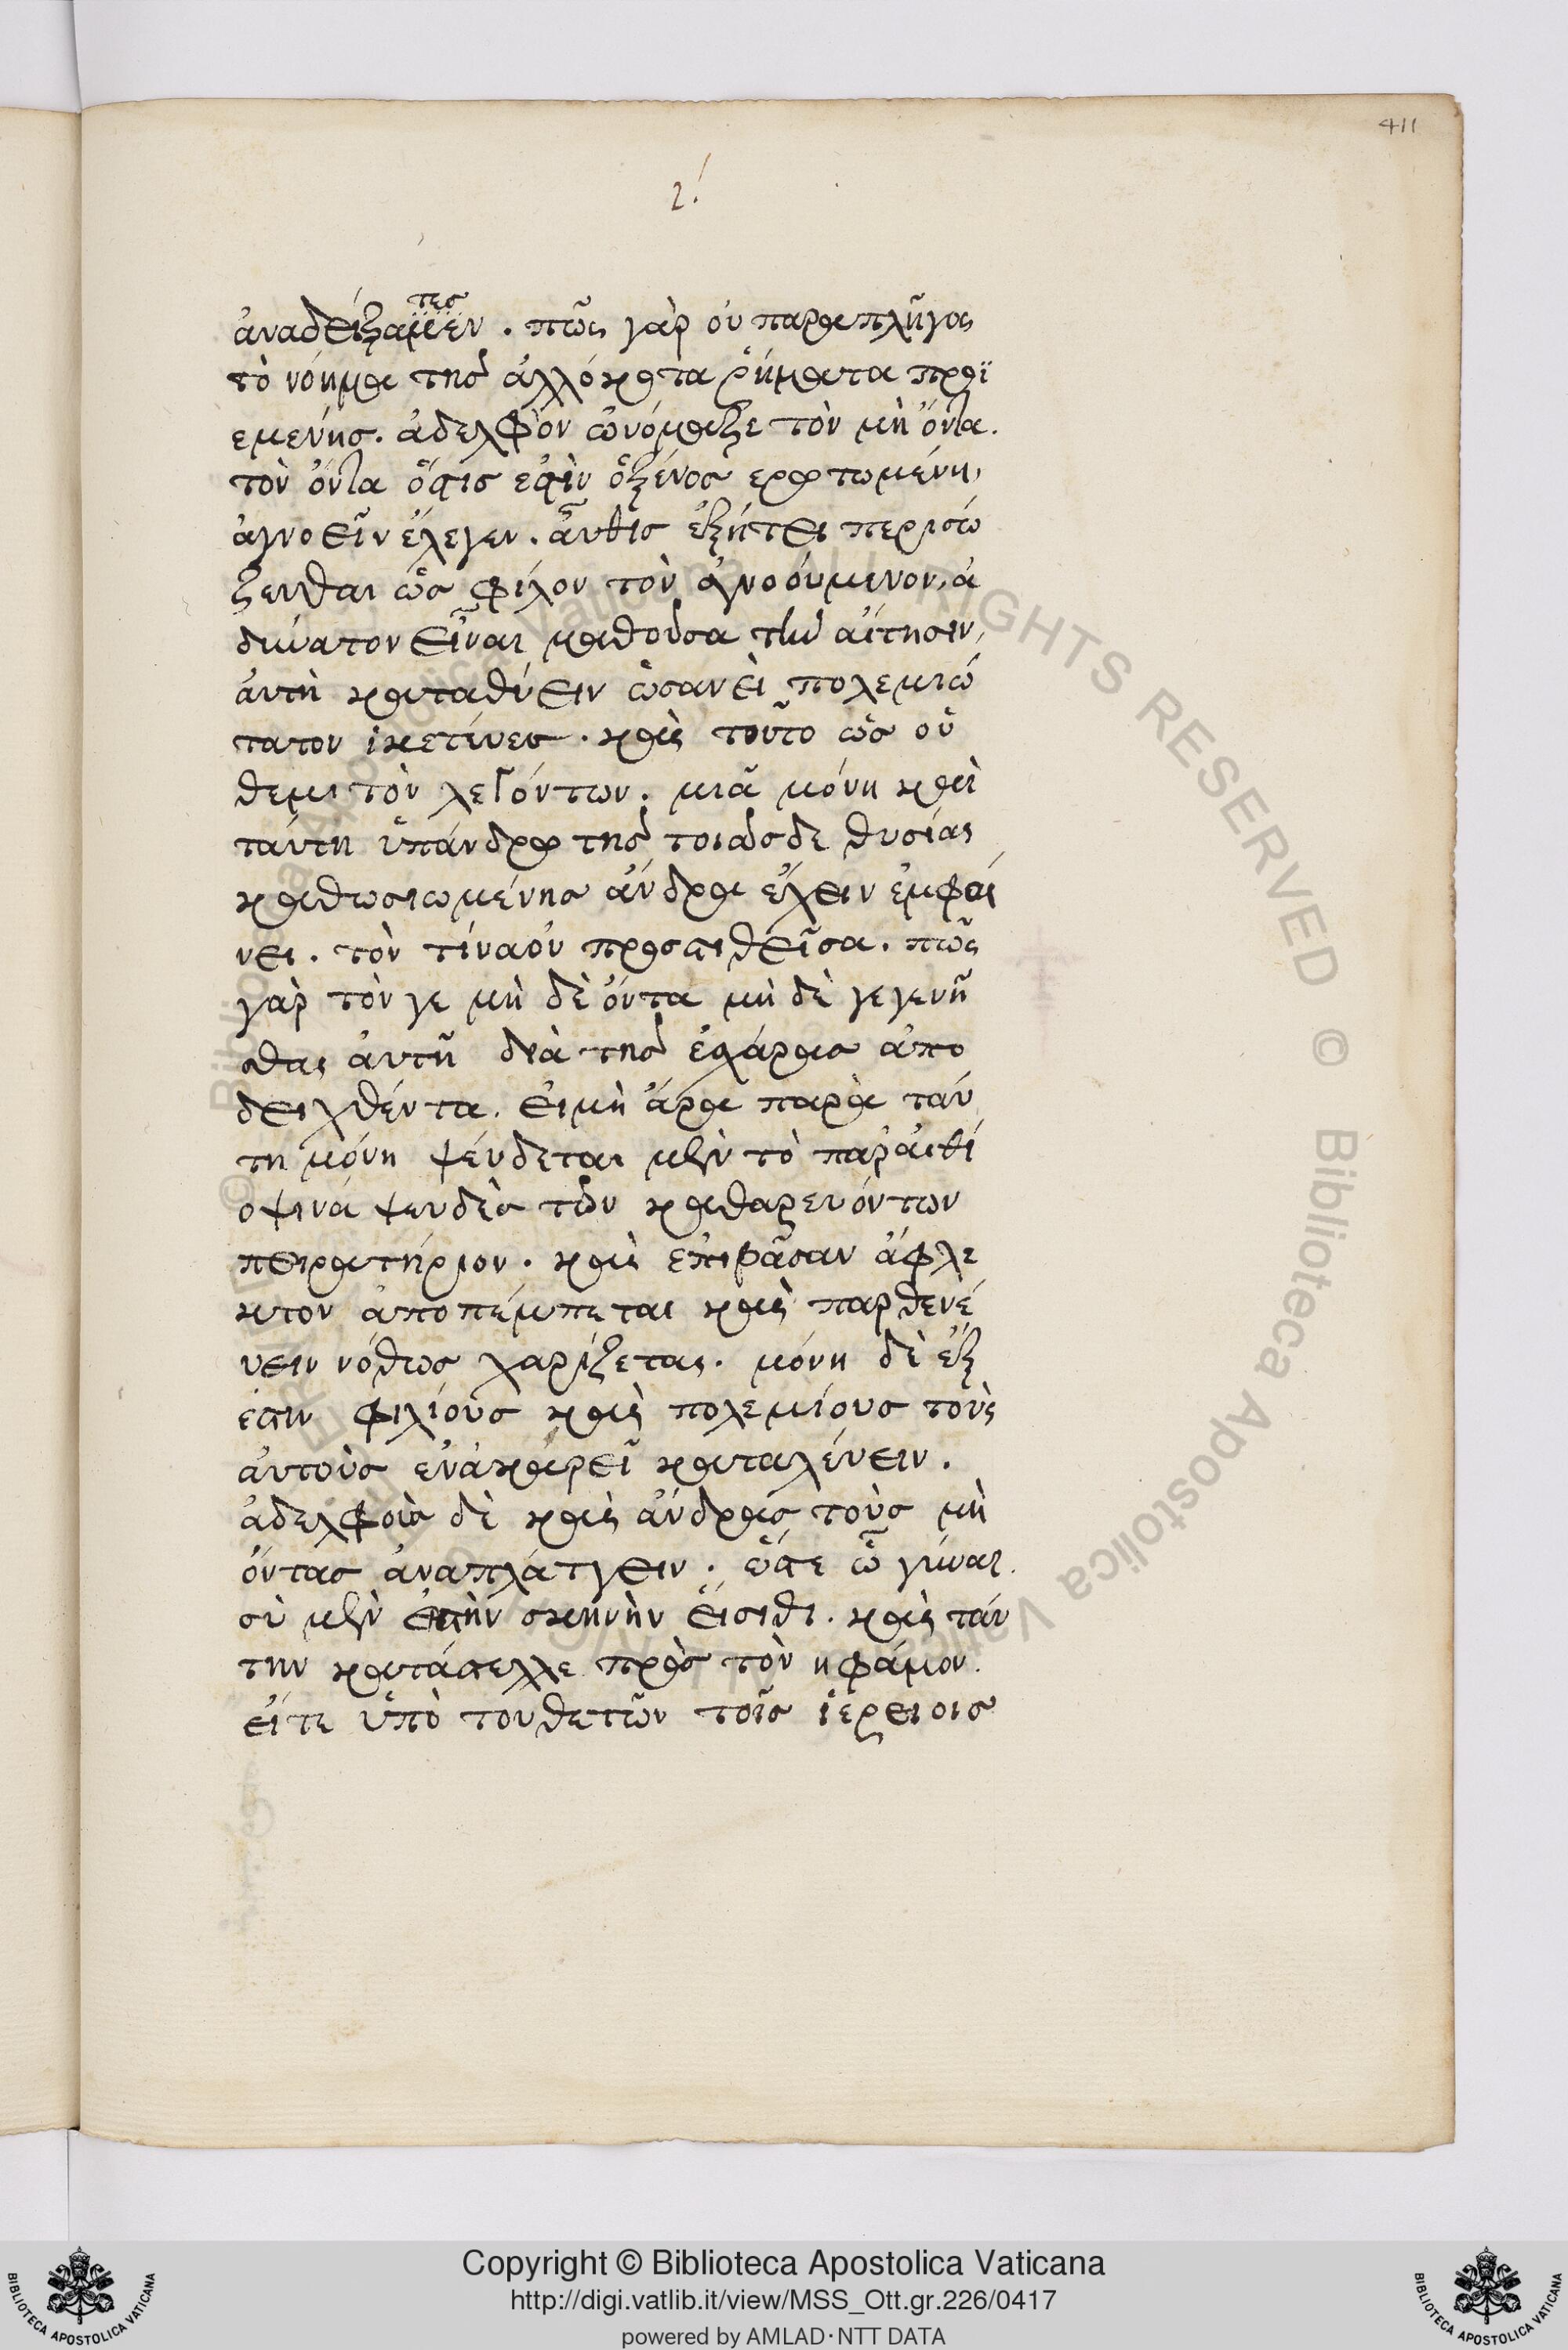 411
ς΄
τες
ἀναδείξαμεν . πῶς γὰρ οὐ παραπλῆγος
τὸ νόημα της ἀλλόκοτα ῥήματα προϊ
εμενης . ἀδελφὸν ὠνόμαζε τὸν μὴ ὄντα .
τὸν ὄντα ὅστις εστὶν ὁξένος ερωτωμένη,
ἀγνοεῖν έλεγεν . αὖθις ἐξήτει περισώ
ζεσθαι ὡς φίλον τὸν ἀγνοούμενον, ἀ
δύνατον εἶναι μαθοῦσα τὴν αἴτησιν,
ἀυτὴ καταθύειν ὡσανεὶ πολεμιώ
τατον ἱκετέυεν . καὶ τοῦτο ὡς οὐ
θεμιτὸν λεγόντων . μιᾶ μόνη καὶ
ταύτη ὑπάνδρω της τοιᾶσδε θυσίας
καθωσιωμένης ἄνδρα ἔχειν ἐμφαί
νει . τὸν τίναοὐν προστιθεῖσα . πῶς
γὰρ τὸν γε μὴ δὲ ὄντα μὴ δὲ γεγενῆ
σθαι ἀυτῆ διὰ της ἐσχάρας ἀπο
δειχθέντα . ειμὴ ἄρα παρὰ ταύ
τη μόνη ψέυδεται μὲν τὸ παρ' αιθί
οψιν ἀψευδὲς τῶν καθαρευόντων
πειρατήριον . καὶ επιβᾶσαν ἄφλε
κτον ἀποπέμπεται καὶ παρθενέ
υειν νόθως χαρίζεται . μόνη δὲ ἔξ
εστιν φιλίους καὶ πολεμίους τοὺς
ἀυτοὺς ενἀκαρεῖ καταλέυειν .
ἀδελφοὺς δὲ καὶ ἄνδρας τοὺς μὴ
ὄντας ἀναπλάττειν . ὥστε ὦ γύναι .
σὺ μὲν ἐπὶ τὴν σκηνὴν εἴσιθι . καὶ ταύ
την κατάστελλε πρὸς τὸν ηφάμον .
εἴτε ὑπὸ του θετῶν τοῖς ἱερείοις
Copyright © Biblioteca Apostolica Vaticana
http://digi.vatlib.it/view/MSS_Ott.gr.226/0417
powered by AMLAD·NTT DATA